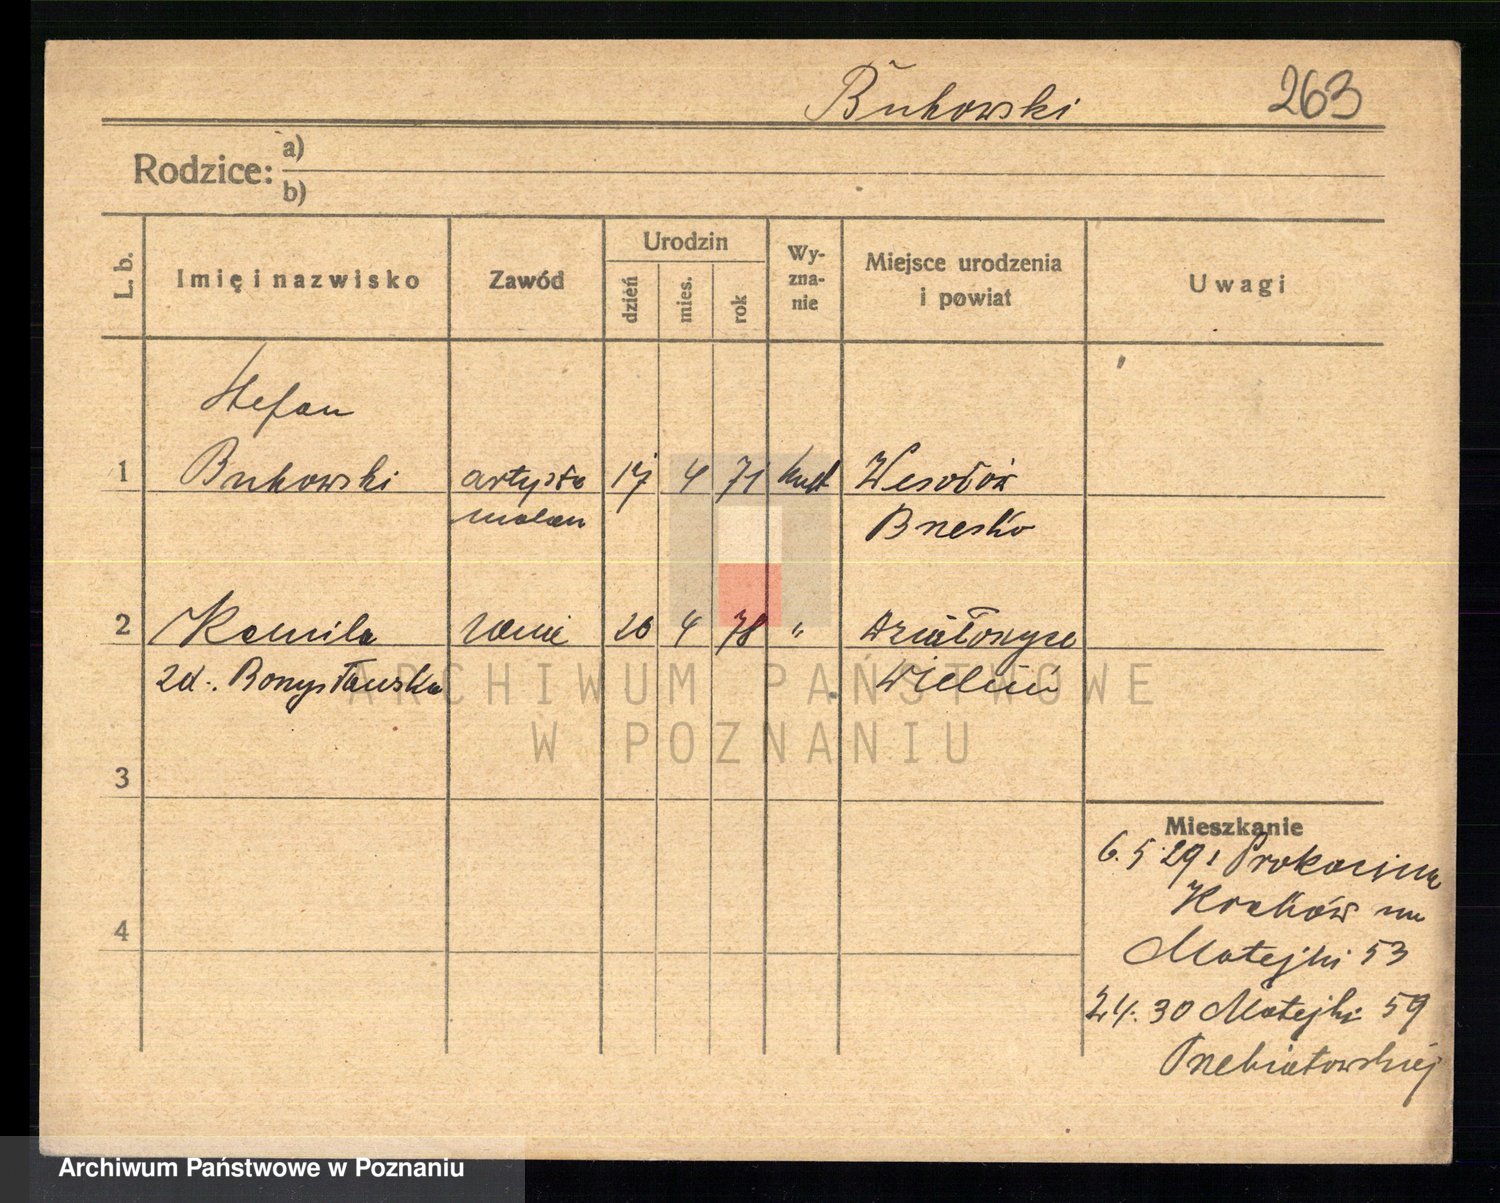 Bukowski 263
Rodzice: a)
b)
L. b.
Imię i nazwisko
Zawód
Urodzin
dzień
mies.
rok
Wy-
zna-
nie
Miejsce urodzenia
i powiat
Uwagi
Stefan
1 Bukowski artysta 17 4 71 Wesołów
malarz Brzesko
2 Kamila żona 20 4 78 " Działoszyce
zd. Wieluń
3
4
Mieszkanie
6.5 29 z Prokocima
Kraków
Matejki 53
24. 30 Matejki 59
ARCHIWUM PAŃSTWOWE
W POZNANIU
Archiwum Państwowe w Poznaniu